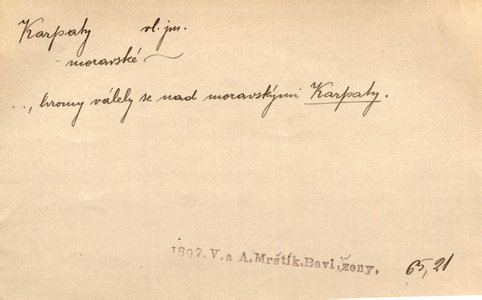 Karpaty vl. jm.
- moravské ~
..., hromy válely se nad moravskými Karpaty.
1897. V. a A. Mrštík, Bavl. ženy, 65, 21